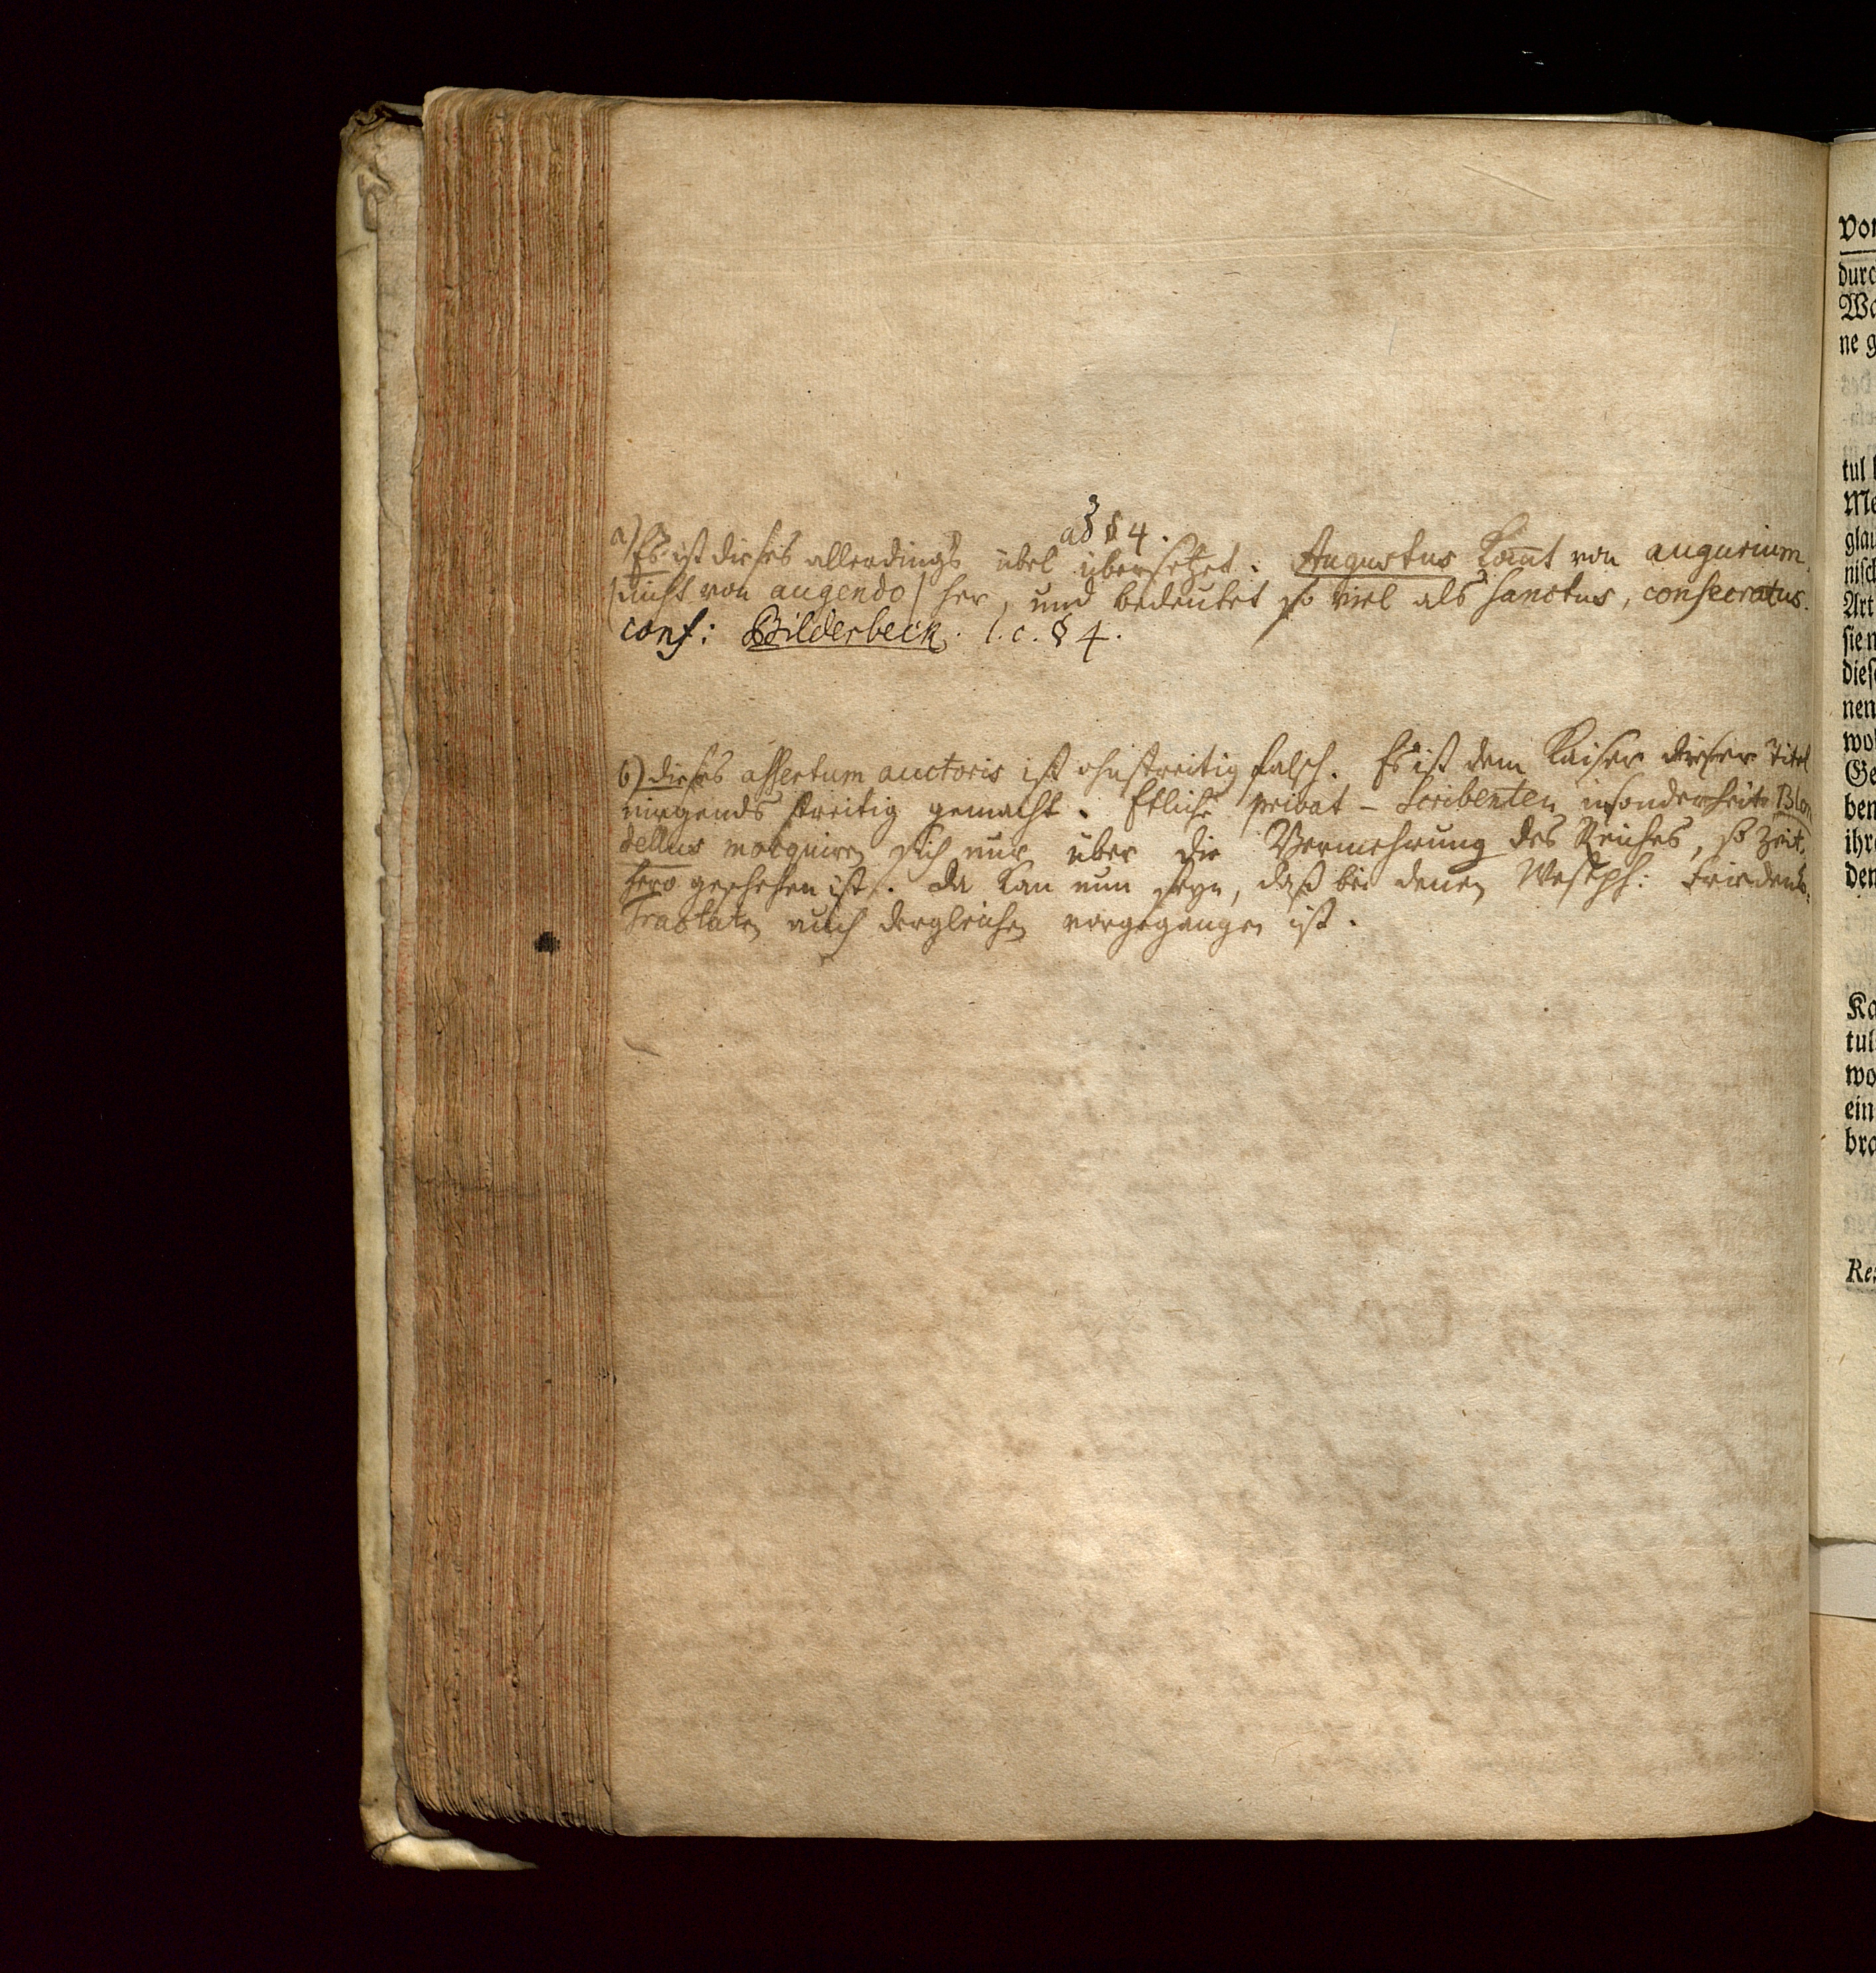 ad § 4.
a) Es ist dieses allerdings übel übersetzet. Augustus kom̄t von augurium
(nicht von augendo) her, und bedeutet so viel als sanctus, consecratus.
conf: Bilderbeck. l. c. § 4.
b) dieses assertum auctoris ist ohnstreitig falsch. Es ist dem Kaiser dieser Titel
nirgends streitig gemacht. Etliche privat-Scribenten insonderheit Blon
dellus moquiren sich nur über die Vermehrung des Reiches, so zeit-
hero geschehen ist. Da kan nun seyn, daß bei denen Westph: Friedens-
Tractaten auch dergleichen vorgegangen ist.
Von
durc
Wa
ne g
tul
Me
glau
nisch
Art
sie n
diese
nen
wo
Ge
ben
ihre
den
Ka
tul
wo
ein
bra
Re